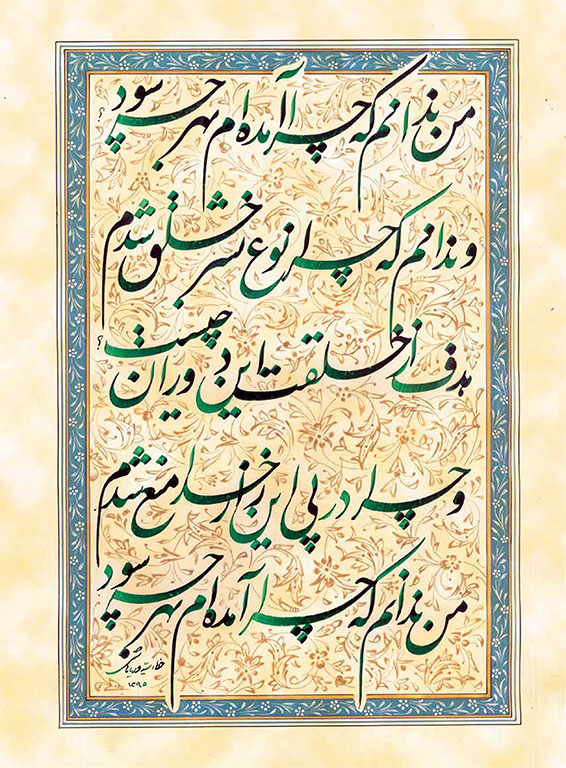 من ندانم که چرا آمده‌ام بهر چه سود؟
و ندانم که چرا نوع بشر خلق شدم
هدف از خلقت این دوران چیست؟
و چرا در پی این راز خدا منع شدم
من ندانم که چرا آمده‌ام بهر چه سود
۱۳۹۵